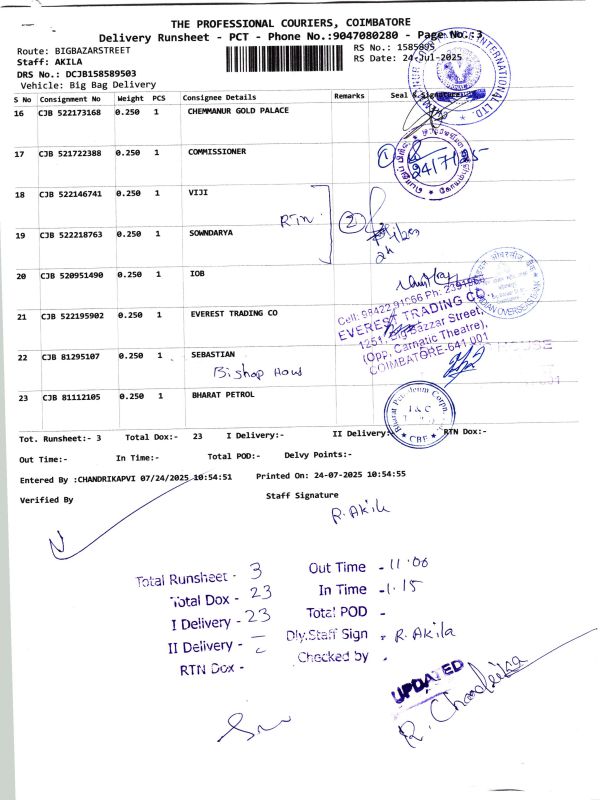 THE PROFESSIONAL COURIERS, COIMBATORE
Delivery Runsheet - PCT - Phone No.:9047080280 - Page No.:3
Route: BIGBAZARSTREET
RS No.: 1585895
Staff: AKILA
RS Date: 24-Jul-2025
DRS No.: DCJB158589503
Vehicle: Big Bag Delivery
S No Consignment No Weight PCS Consignee Details Remarks Seal & Signature
16 CJB 522173168 0.250 1 CHEMMANUR GOLD PALACE
INTERNATIONAL LTD.
17 CJB 521722388 0.250 1 COMMISSIONER
1 24/7/25
18 CJB 522146741 0.250 1 VIJI
RTN 2
19 CJB 522218763 0.250 1 SOWNDARYA
20 CJB 520951490 0.250 1 IOB
INDIAN OVERSEAS BANK
21 CJB 522195902 0.250 1 EVEREST TRADING CO
Cell: 98422 91066 Ph:
EVEREST TRADING CO.
1251, Big Bazzar Street,
(Opp. Carnatic Theatre),
COIMBATORE-641 001
22 CJB 81295107 0.250 1 SEBASTIAN
Bishop
23 CJB 81112105 1 0.250 BHARAT PETROL
Bharat Petroleum Corpn.
I & C
CBE
Tot. Runsheet:- 3 Total Dox:- 23 I Delivery:- II Delivery:- RTN Dox:-
Out Time:- In Time:- Total POD:- Delvy Points:-
Entered By :CHANDRIKAPVI 07/24/2025 10:54:51 Printed On: 24-07-2025 10:54:55
Verified By Staff Signature
R. Akila
Total Runsheet - 3 Out Time - 11.06
Total Dox - 23 In Time - 1.15
I Delivery - 23 Total POD -
II Delivery - Dly.Staff Sign - R. Akila
RTN Dox - Checked by -
UPDATED
R. Chandrika